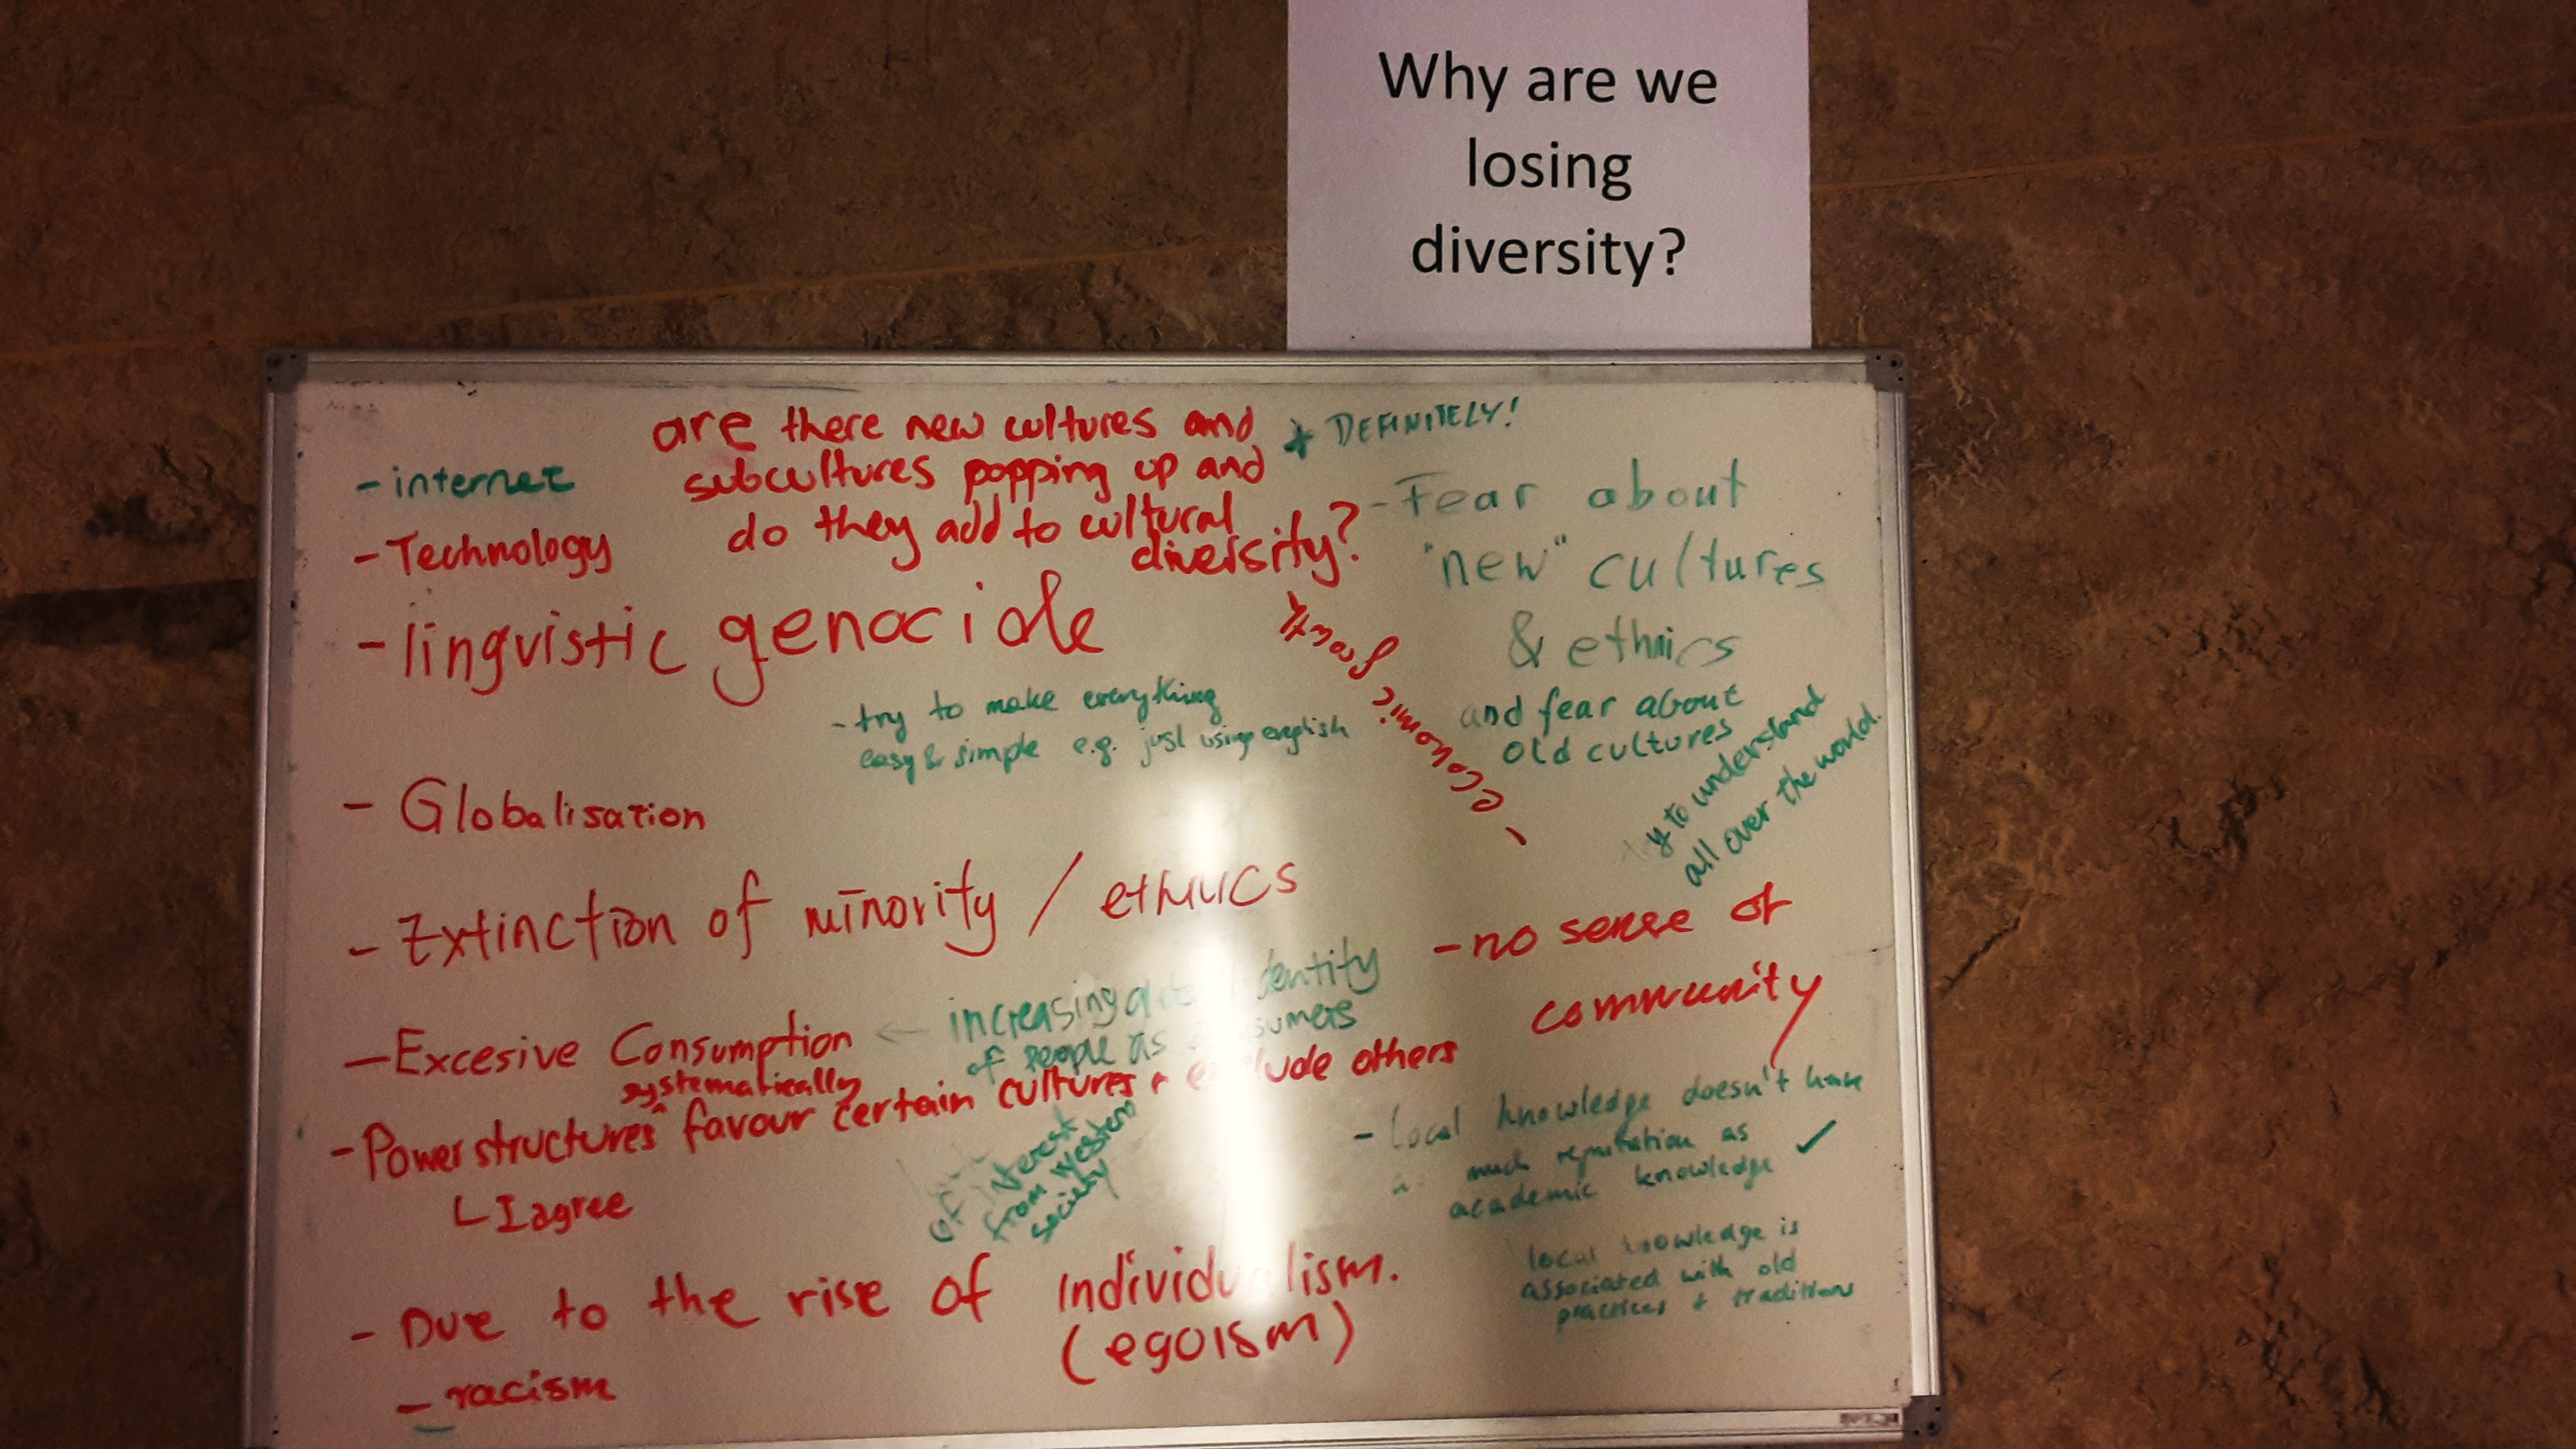 Why are we
losing
diversity?
are there new cultures and
subcultures popping up and
do they add to cultural
diversity?
DEFINITELY!
- internet
- Technology
- lingvistic genocide
- try to make everything
easy & simple e.g. just using english
- Globalisation
- Extinction of minority / ethnics
- Excesive Consumption
← increasing identity
of people as
- Power structures systematically favour certain cultures + others
I agree
of interest
from western
society
- Due to the rise of Individualism.
(egoism)
- racism
- Fear about
"new" cultures
& ethnics
and fear about
old cultures
- economic growth
to understand
all over the world.
- no sense of
community
- Local knowledge doesn't have
much reputation as
academic knowledge ✓
local knowledge is
associated with old
practices + traditions